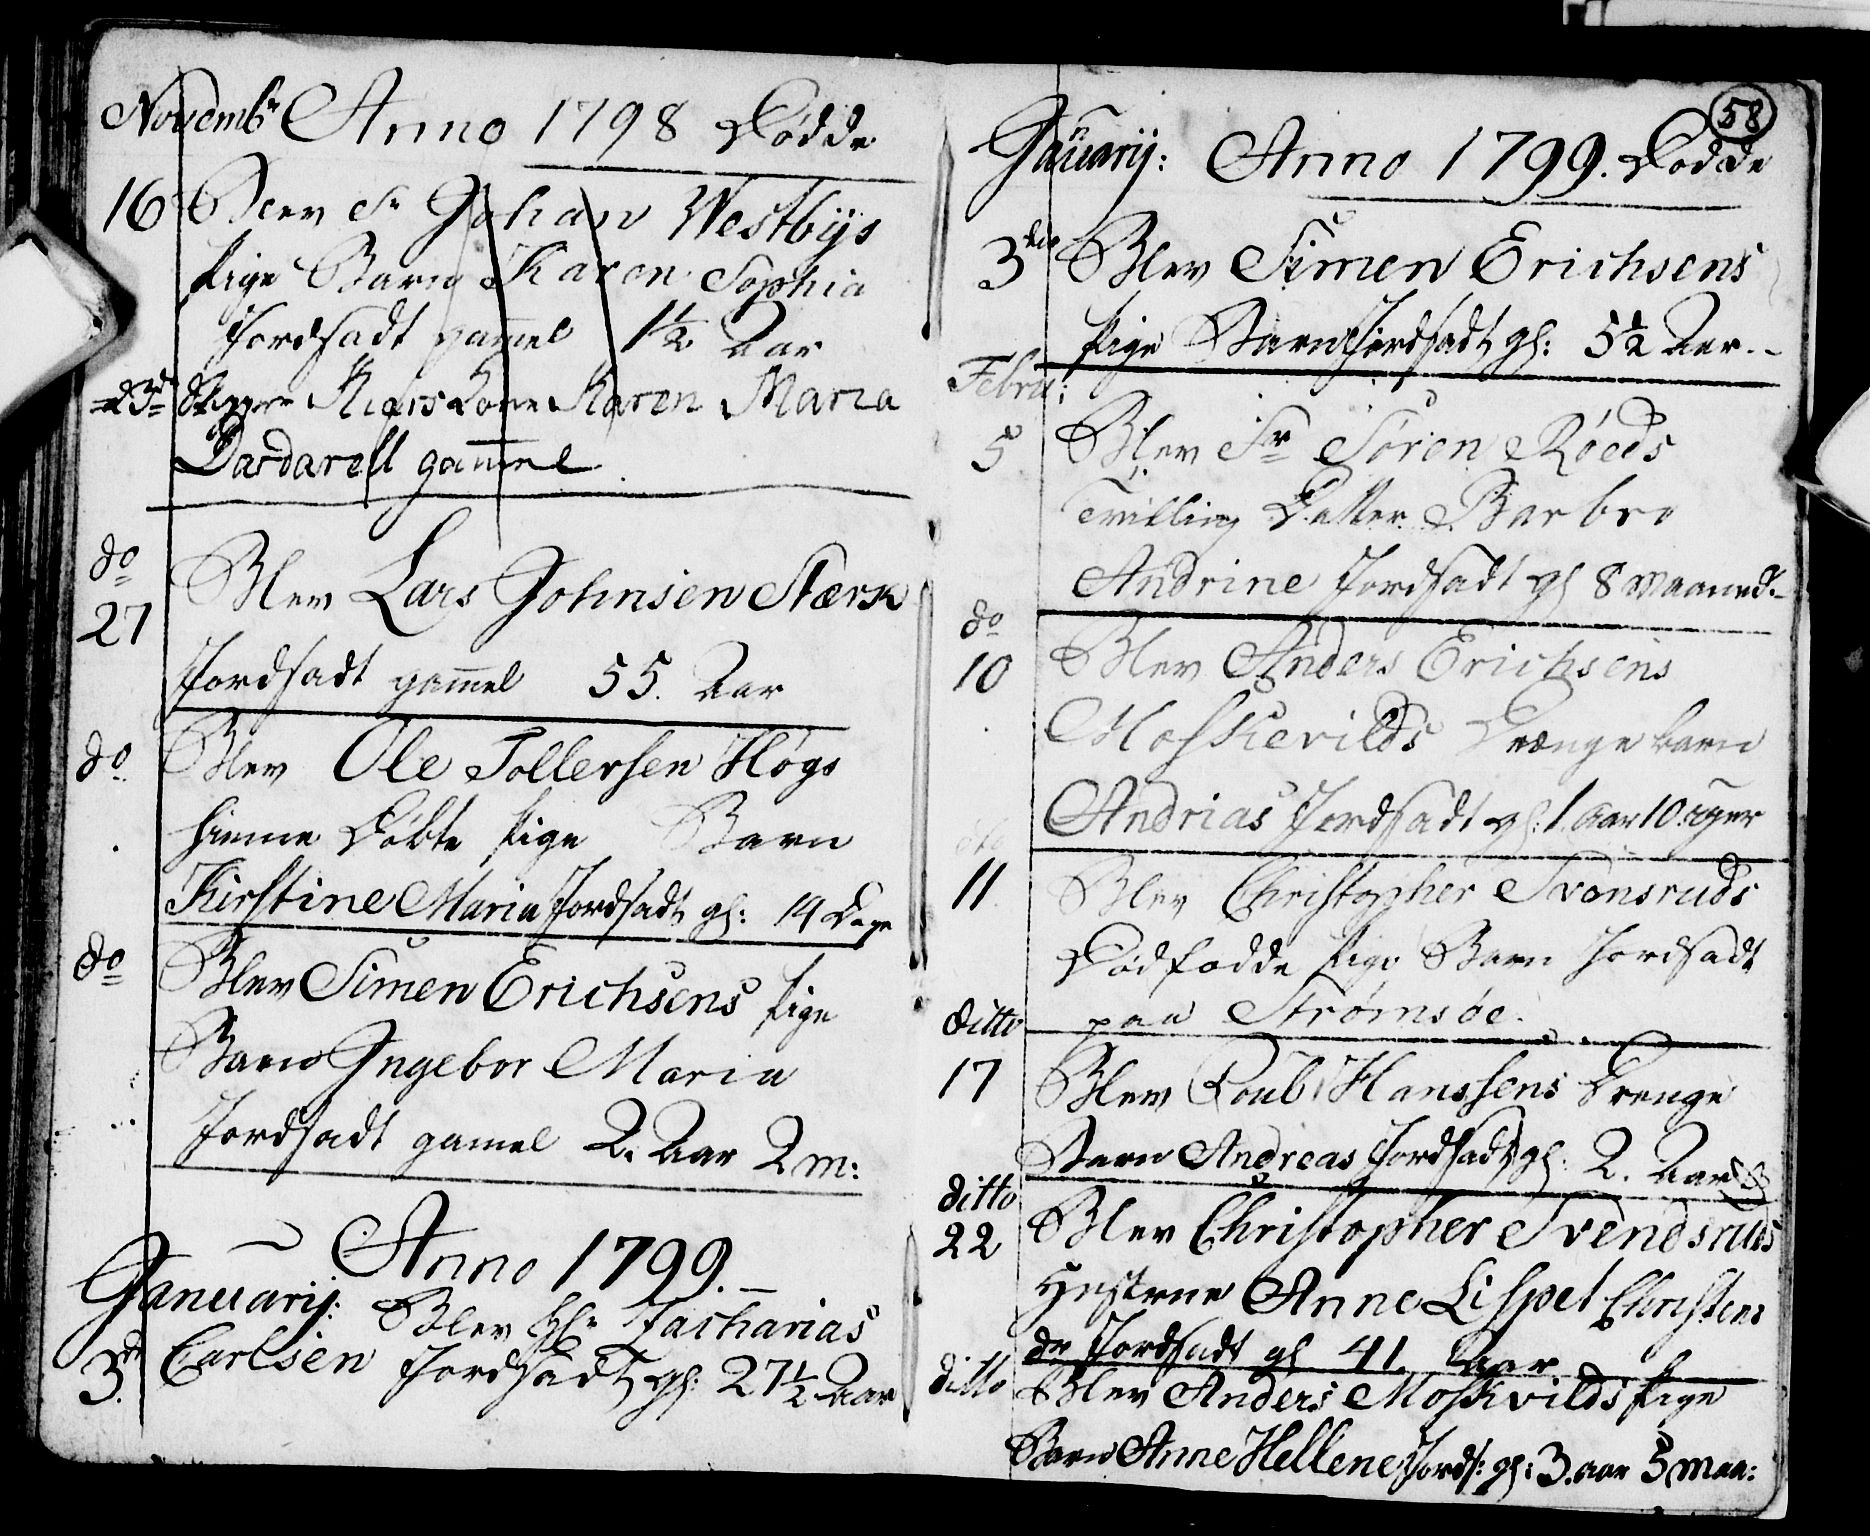 Novembr Anno 1798 Dødde
16 Blev Sr Johan Westbÿs
Pige Barn Karen Sophia
Jordsadt gam̄el 1½ Aar
23de Skipper Kiers Kone Karen Maria
Dardarell gam̄el
do
27 Blev Lars Johnsen Stærk
Jordsadt gam̄el 55. Aar
do Blev Ole Tollersen Høgs
hieme Døbte Pige Barn
Kirstine Maria Jordsadt gl: 14 Dage
do Blev Simen Erichsens Pige
Barn Ingebor Maria
Jordsadt gamel 2. Aar 2 m:
Anno 1799.
Januarij: Blev Zacharias
3d. Carlsen Jordsadt gl: 27½ Aar
58
Januarij: Anno 1799. Dødde
3die Blev Simen Erichsens
Pige Barn Jordsadt gl: 5½ Aar
Febru:
5 Blev Sr Søren Røeds
Tvilling Datter Barbro
Andrine Jordsadt gl 8 Maaned
do
10 Blev Anders Erichsens
Moskievilds Drænge barn
Andrias Jordsadt gl: 1 Aar 10 uger
11 Blev Christopher Svensruds
Dødfødde Pige Barn Jordsadt
paa Strømsøe.
ditto
17 Blev Roub Hanssens Drenge
Barn Andreas Jordsadt gl: 2. Aar
ditto
22 Blev Christopher Svendsruds
Hustrue Anne Lispet Christens
dr Jordsadt gl 41. Aar
ditto Blev Anders Moskvilds Pige
Barn Anne Hellene Jords: gl: 3. aar 5 maa: